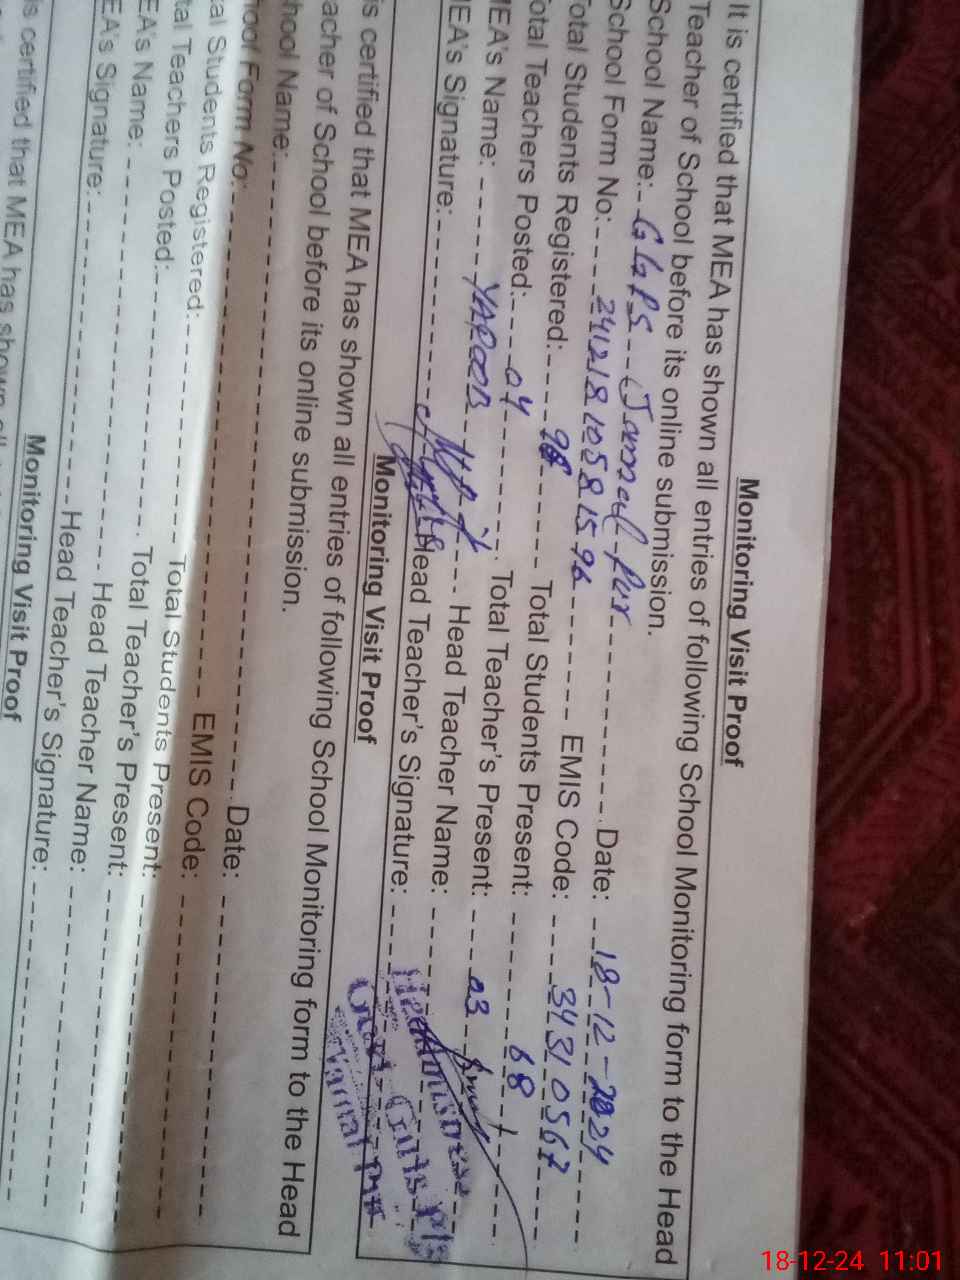 Monitoring Visit Proof
It is certified that MEA has shown all entries of following School Monitoring form to the Head
Teacher of School before its online submission.
School Name: GGPS Jamal Pur Date: 18-12-2024
School Form No: 241218105815 96 EMIS Code: 34310567
Total Students Registered: 98 Total Students Present: 68
Total Teachers Posted: 04 Total Teacher's Present: 03
MEA's Name: YAQOOB Head Teacher Name:
MEA's Signature: Head Teacher's Signature:
Headmistress
Govt. Girls P/S
Jamal Pur
Monitoring Visit Proof
is certified that MEA has shown all entries of following School Monitoring form to the Head
acher of School before its online submission.
hool Name: Date:
hool Form No: EMIS Code:
tal Students Registered: Total Students Present:
tal Teachers Posted: Total Teacher's Present:
EA's Name: Head Teacher Name:
EA's Signature: Head Teacher's Signature:
Monitoring Visit Proof
is certified that MEA has shown all
18-12-24 11:01